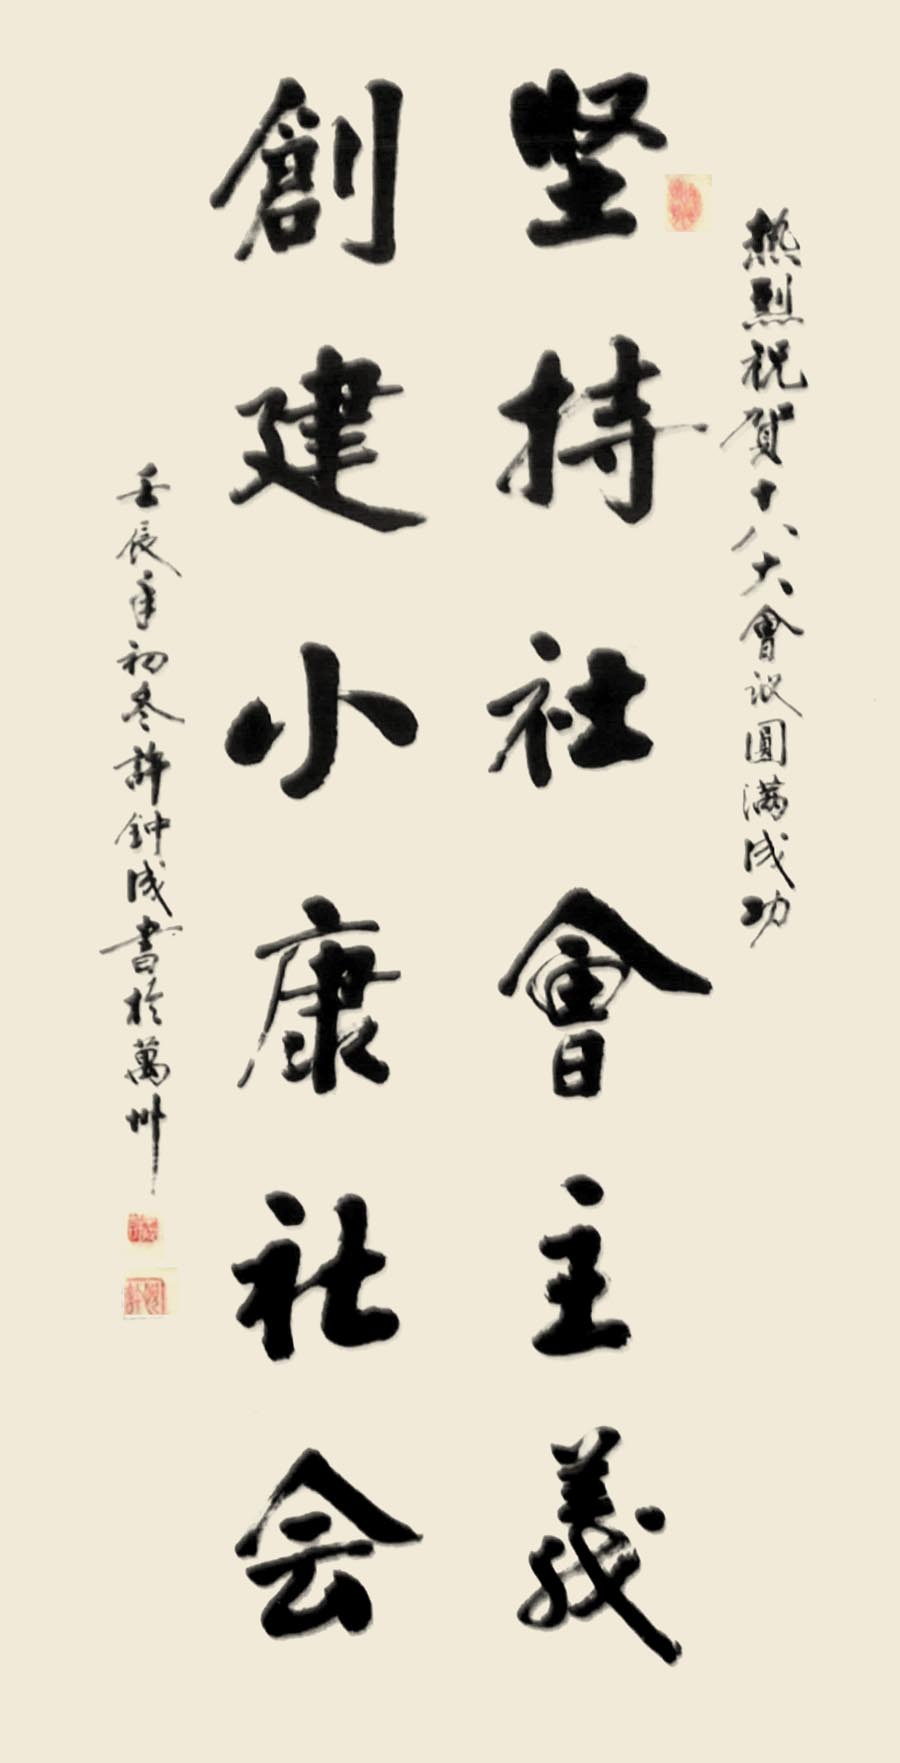 热烈祝贺十八大會议圓满成功
坚持社會主義
創建小康社会
壬辰年初冬許鈡成書於萬州